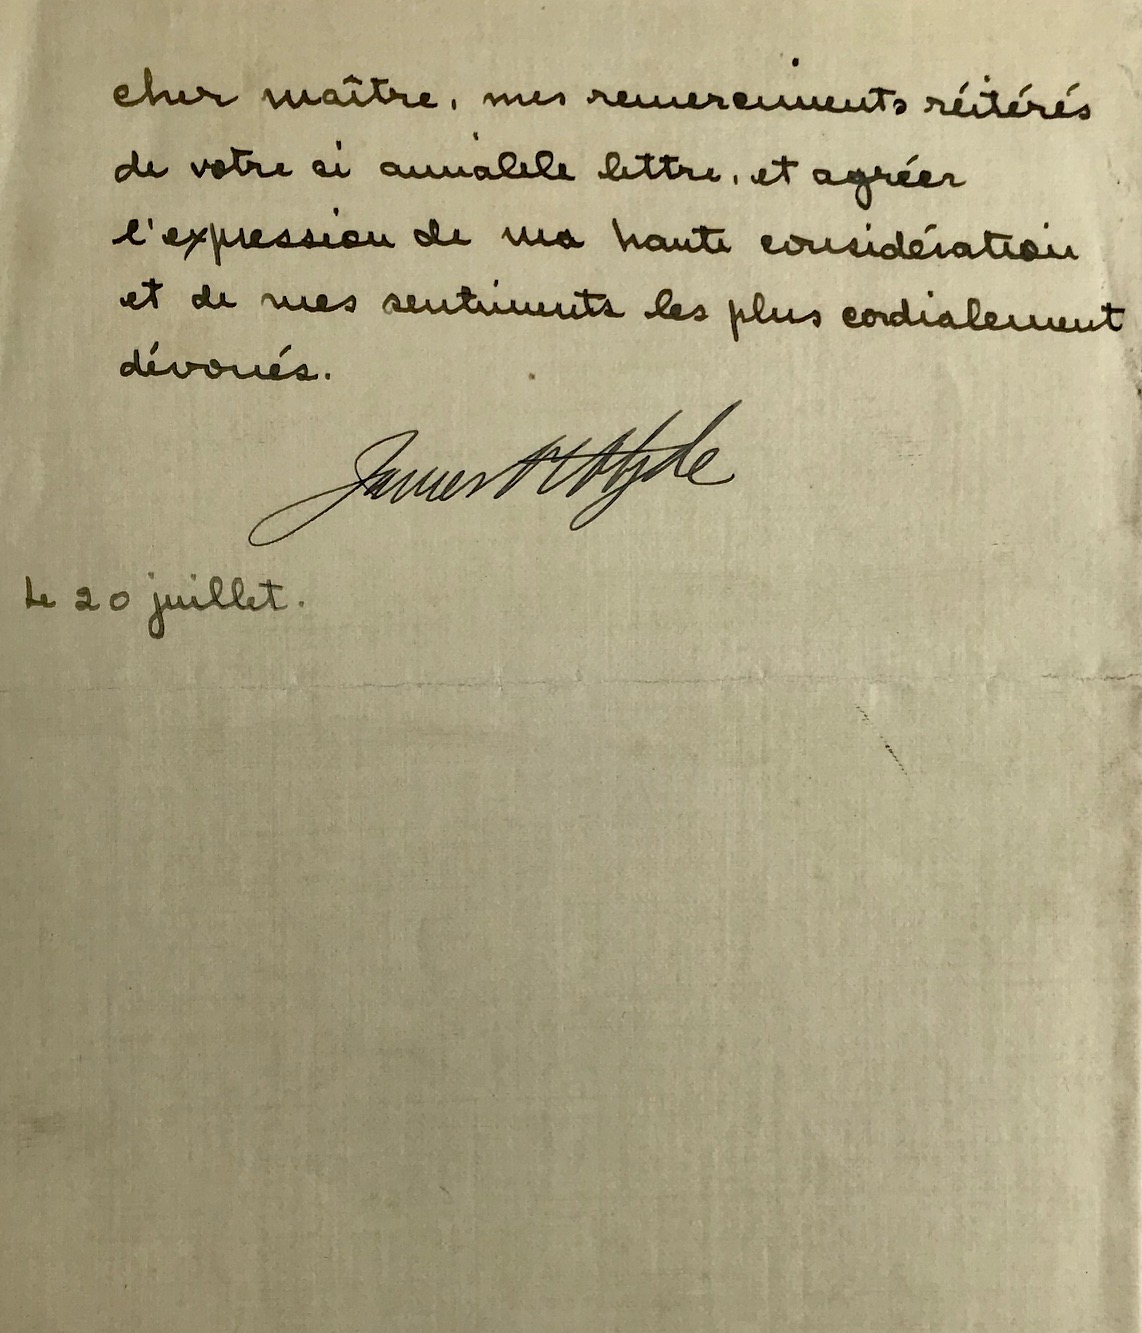 cher maître, mes remerciments réitérés
de votre si aimable lettre, et agréer
l'expression de ma haute considération
et de mes sentiments les plus cordialement
dévoués.
James H Hyde
Le 20 juillet.